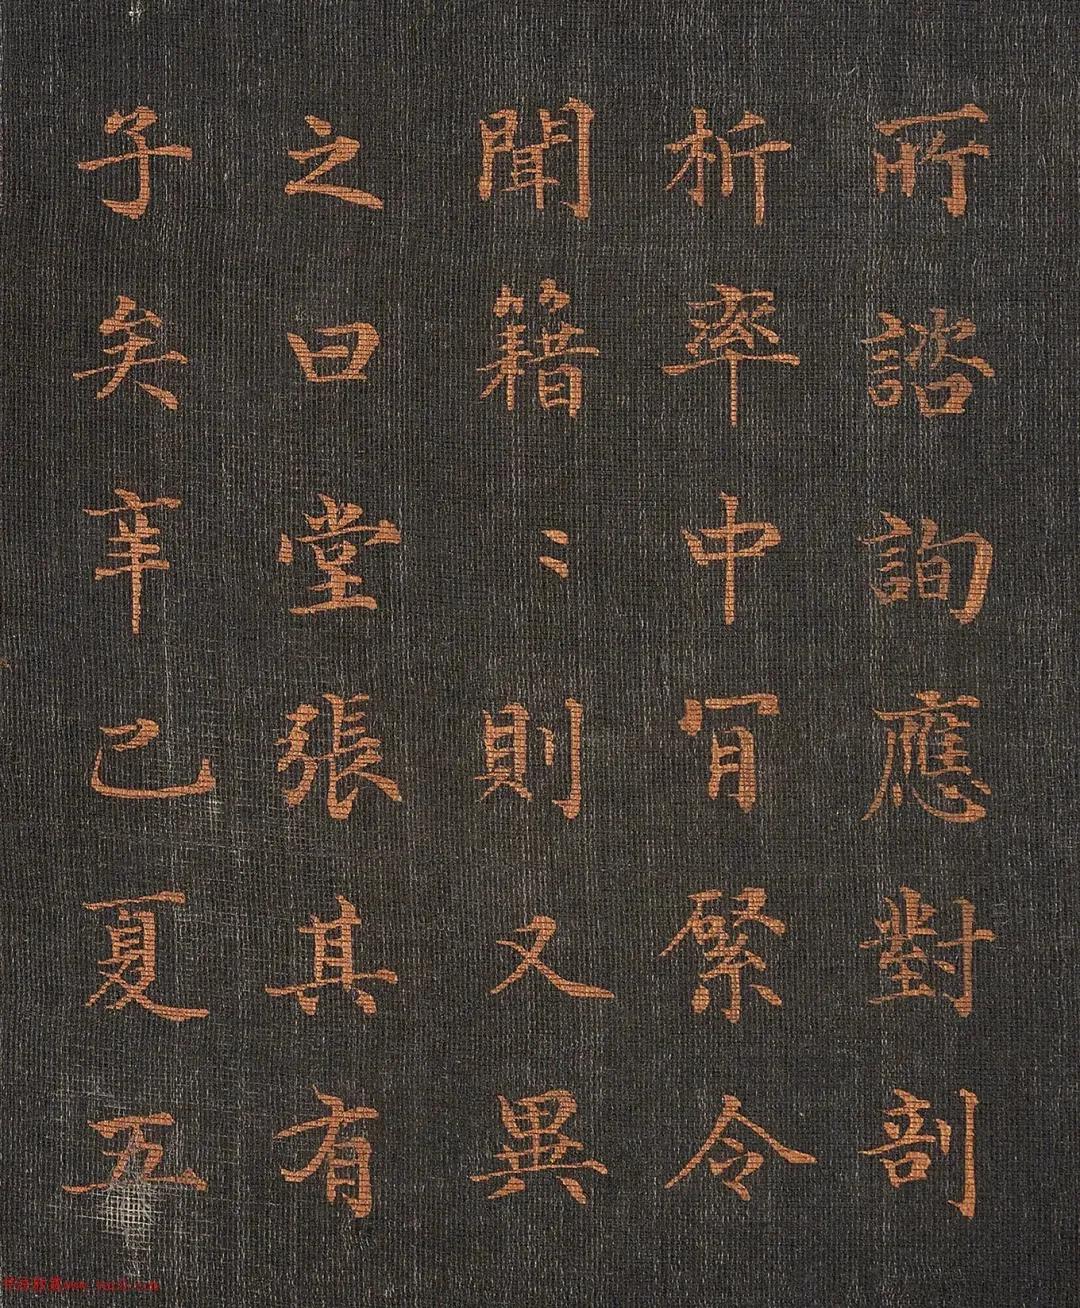 所諮詢應對剖
析率中肎綮令
聞籍〻則又異
之曰堂張其有
子矣辛巳夏五